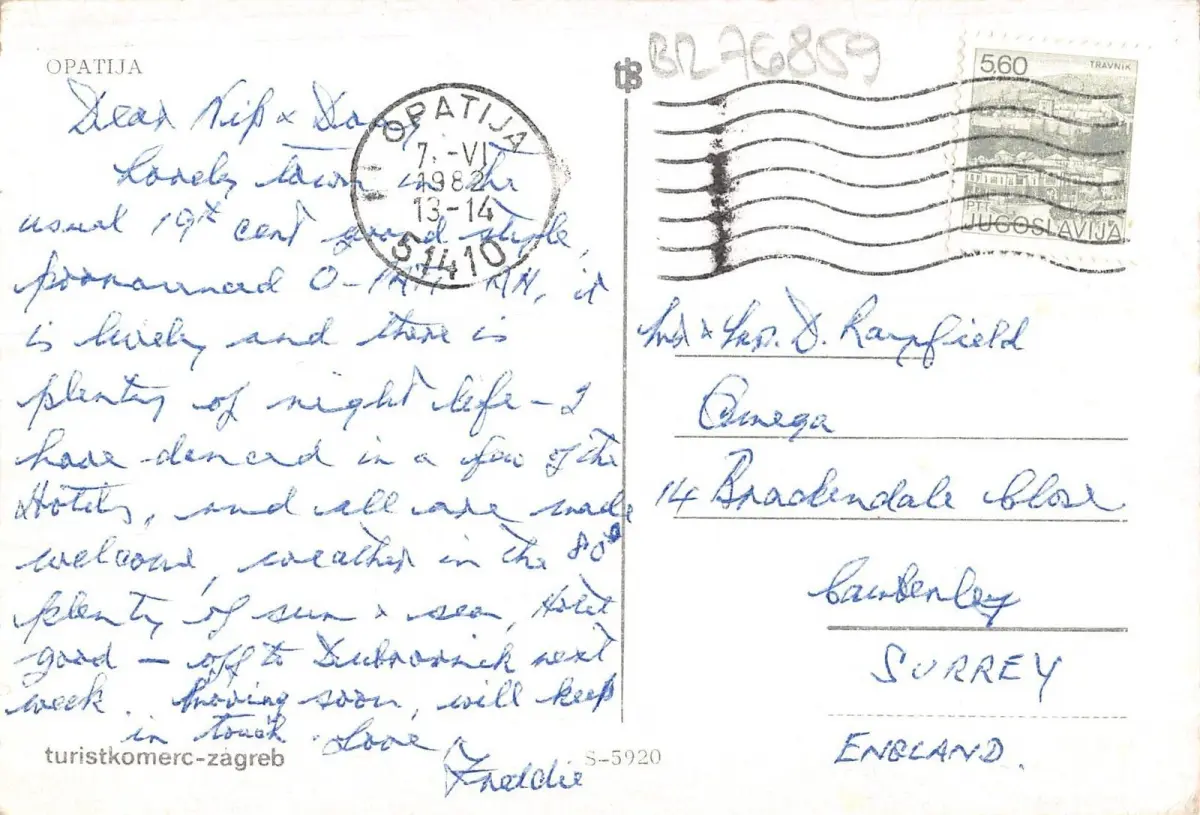 OPATIJA
Dear Nip & 
Lovely town in the
usual 19th cent grand style,
pronounced O-PAT-YAH, it
is lively and there is
plenty of night life - I
have danced in a few of the
Hotels, and all are made
welcome, weather in the 80°
plenty of sun & sea, Hotel
good - off to Dubrovnik next
week. Moving soon, will keep
in touch. Love,
Freddie
turistkomerc-zagreb
S-5920
BR 76859
OPATIJA
7.-VI
1982
13-14
51410
5,60
TRAVNIK
PTT
JUGOSLAVIJA
Mr & Mrs. D. Rayfield
Omega
14 Brackendale Close
Camberley
SURREY
ENGLAND.